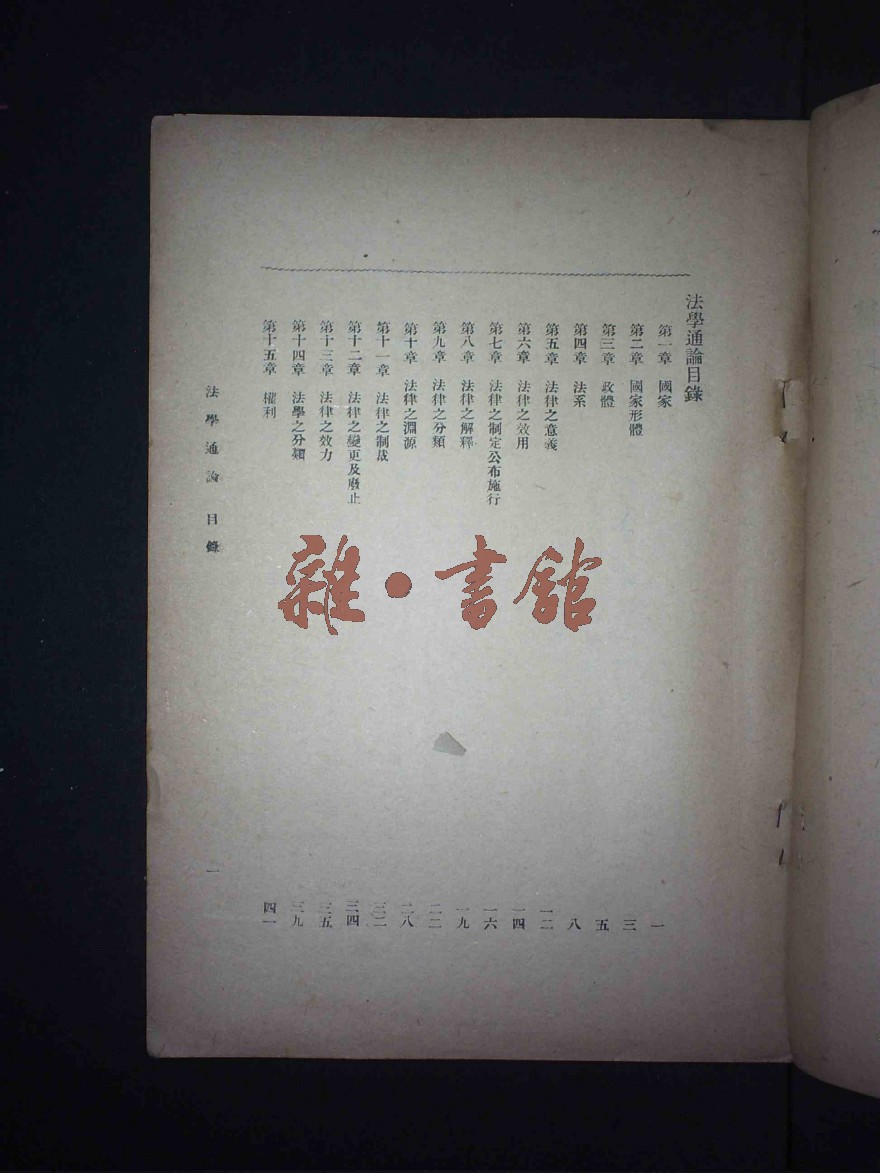 法學通論目錄
第一章 國家 一
第二章 國家形體 三
第三章 政體 五
第四章 法系 八
第五章 法律之意義 一二
第六章 法律之效用 一四
第七章 法律之制定公布施行 一六
第八章 法律之解釋 一九
第九章 法律之分類 二二
第十章 法律之淵源 二八
第十一章 法律之制裁 三二
第十二章 法律之變更及廢止 三四
第十三章 法律之效力 三五
第十四章 法學之分類 三九
第十五章 權利 四一
法學通論 目錄 一
雜·書館